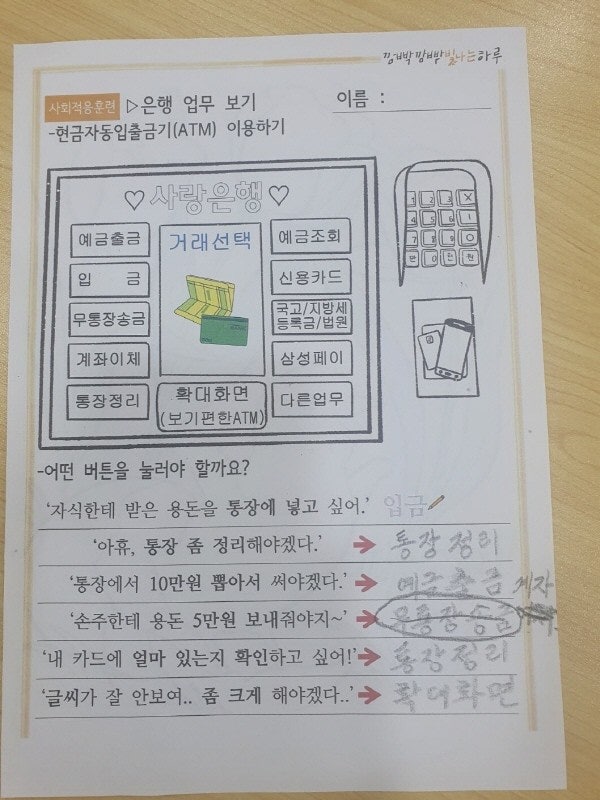 깜빡깜빡빛나는하루
사회적응훈련 ▷은행 업무 보기 이름 :
-현금자동입출금기(ATM) 이용하기
♡사랑은행♡
예금출금 거래선택 예금조회
입 금 신용카드
무통장송금 국고/지방세
등록금/법원
계좌이체 삼성페이
통장정리 확대화면 다른업무
(보기편한ATM)
1 2 3 X
4 5 6
7 8 9
만 0 천 원
-어떤 버튼을 눌러야 할까요?
'자식한테 받은 용돈을 통장에 넣고 싶어.' 입금
'아휴, 통장 좀 정리해야겠다.' → 통장정리
'통장에서 10만원 뽑아서 써야겠다.' → 예금출금 계자
'손주한테 용돈 5만원 보내줘야지~' → 무통장송금
'내 카드에 얼마 있는지 확인하고 싶어!' → 통장정리
'글씨가 잘 안보여.. 좀 크게 해야겠다..' → 확대화면